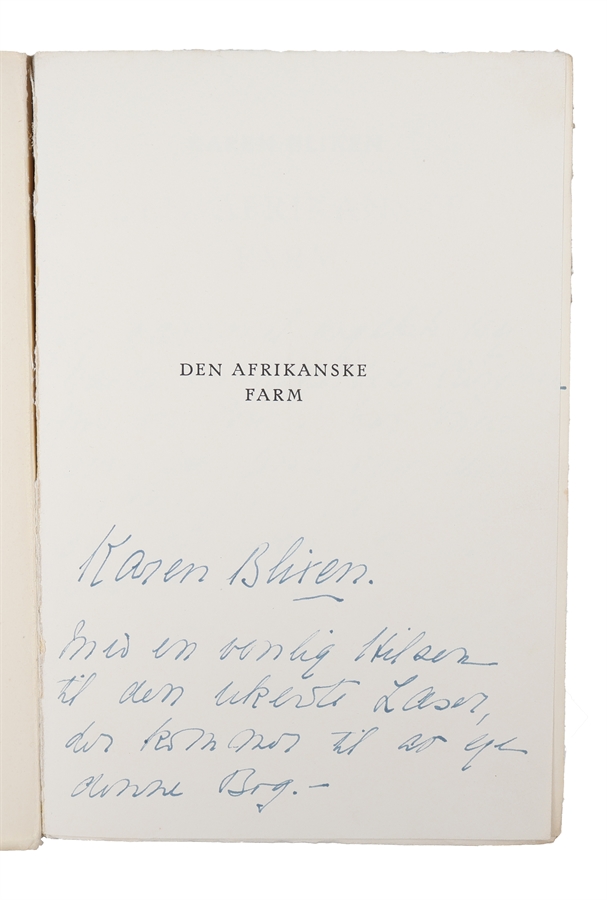 DEN AFRIKANSKE
FARM
Karen Blixen.
Med en venlig Hilsen
til den ukendte Læser,
der kommer til at eje
denne Bog.–